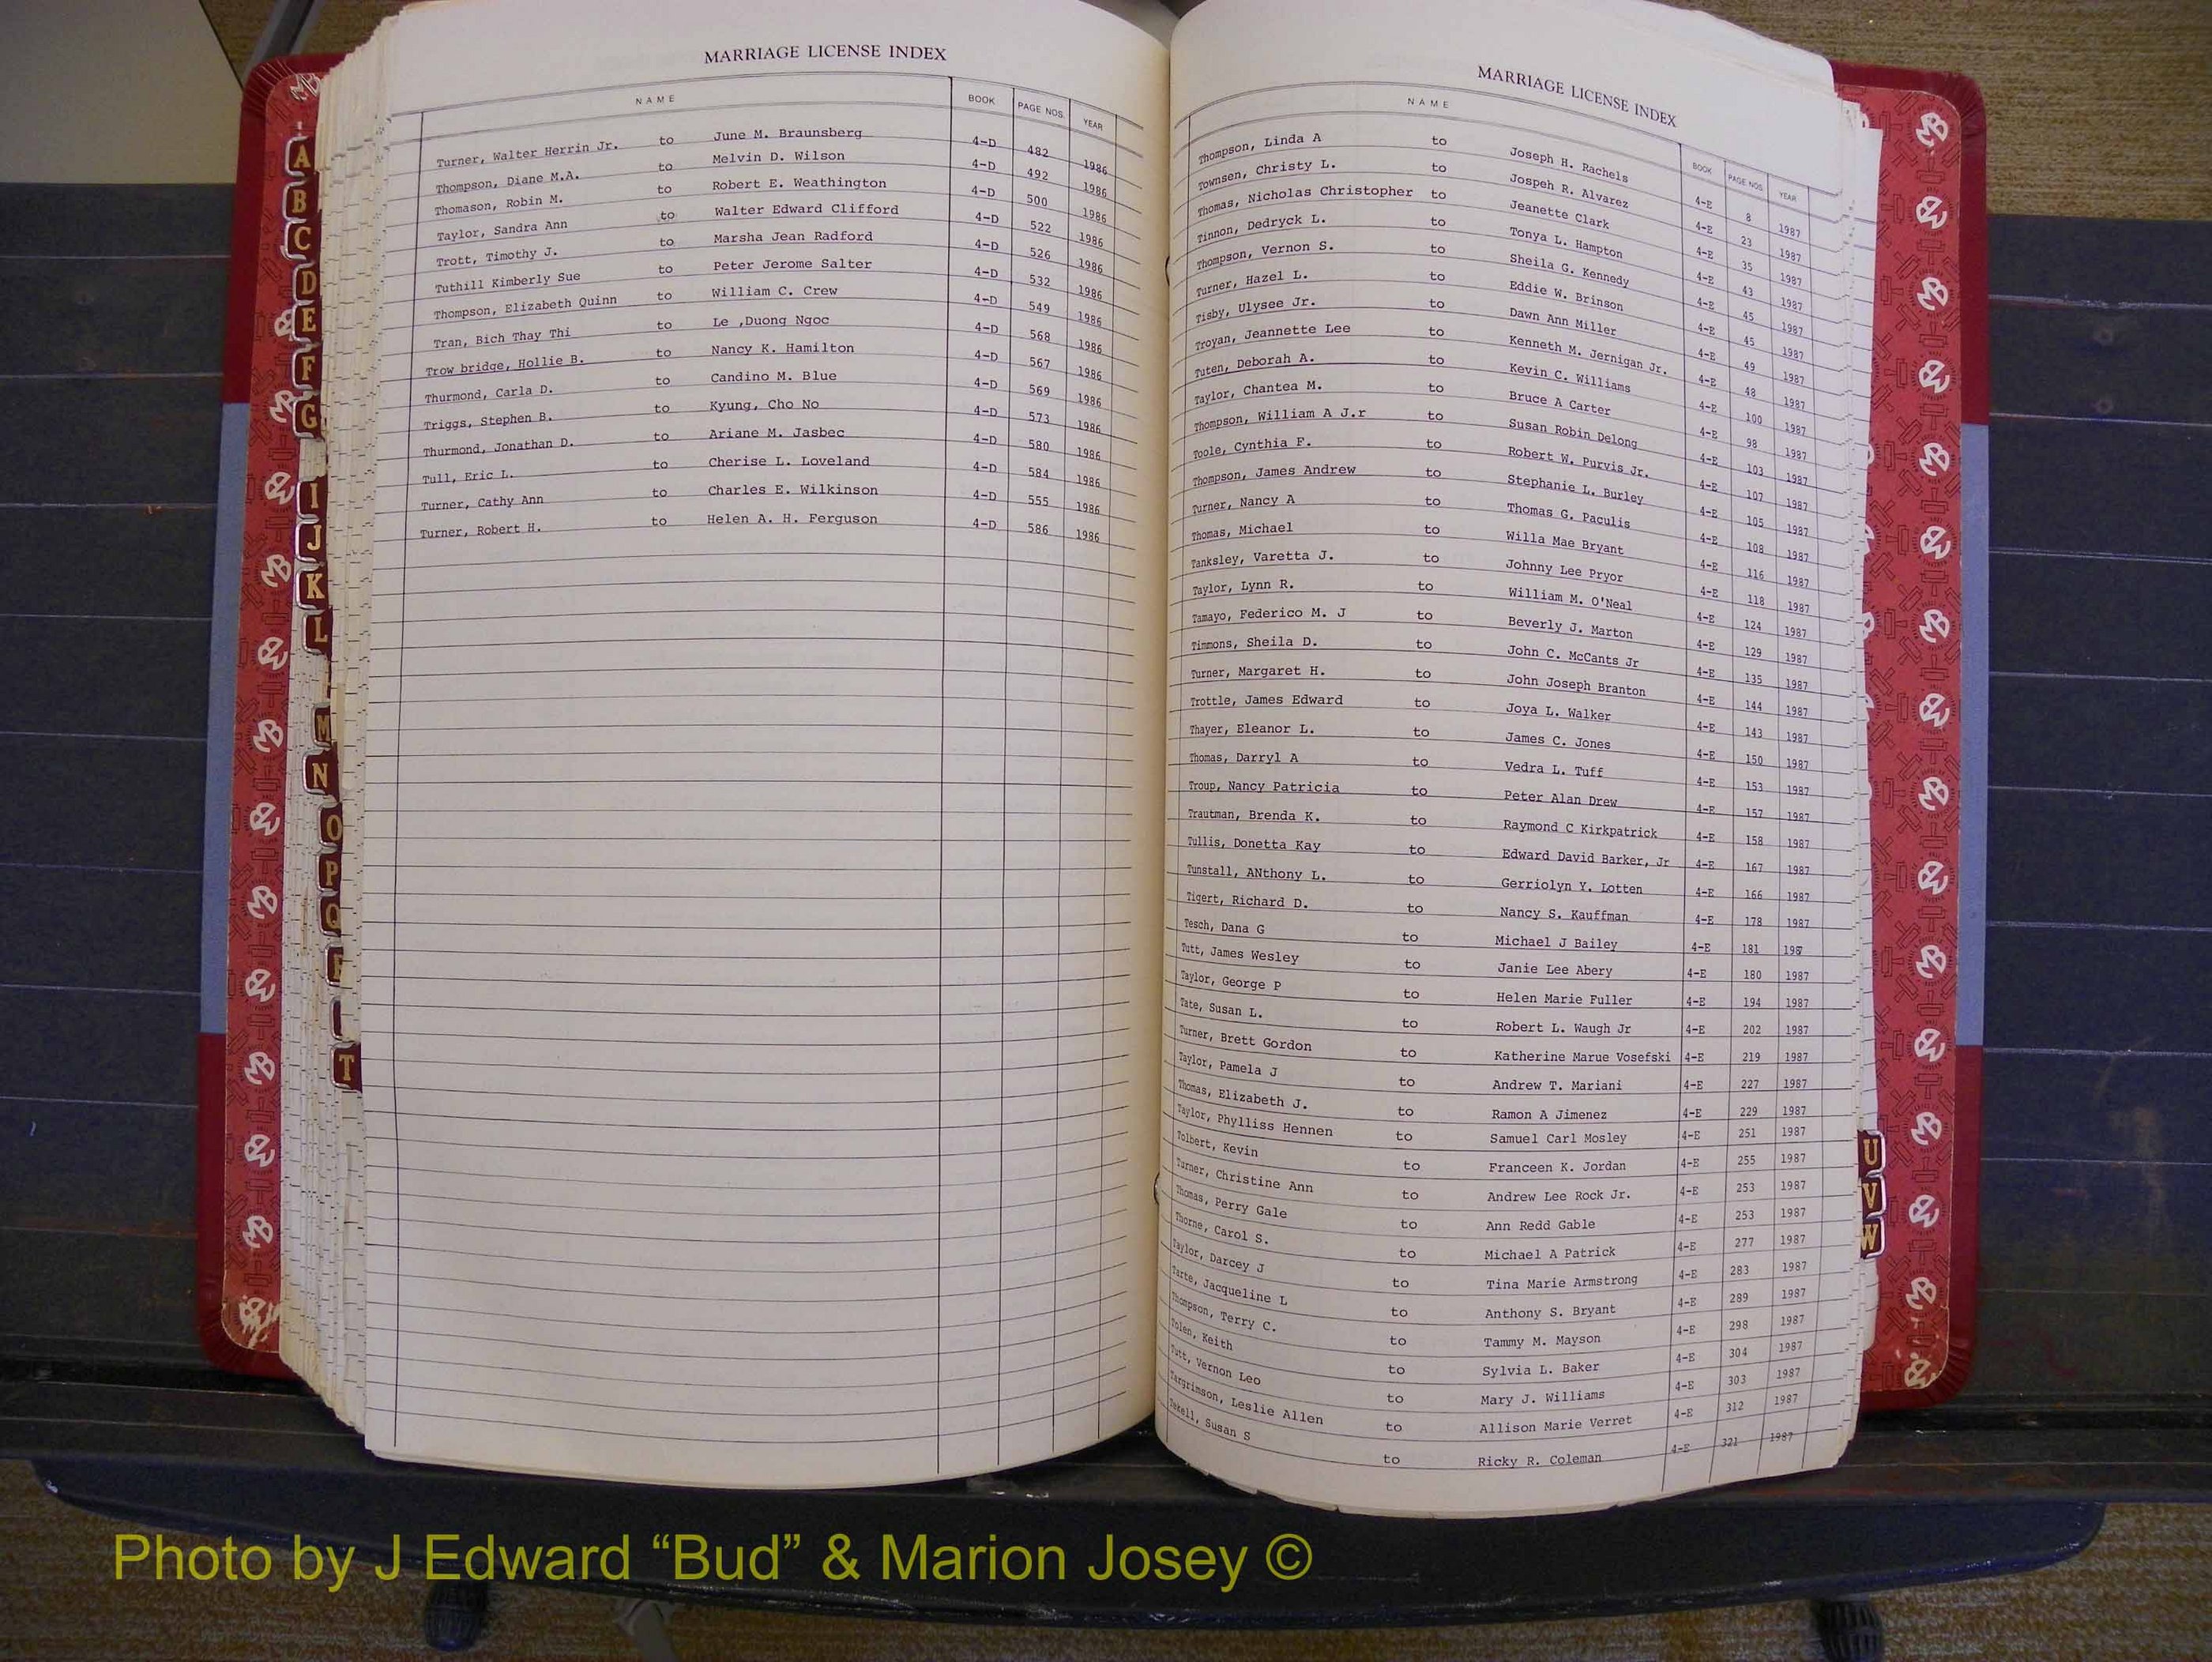 MARRIAGE LICENSE INDEX
NAME BOOK PAGE NOS. YEAR
Turner, Walter Herrin Jr. to June M. Braunsberg 4-D 482 1986
Thompson, Diane M.A. to Melvin D. Wilson 4-D 492 1986
Thomason, Robin M. to Robert E. Weathington 4-D 500 1986
Taylor, Sandra Ann to Walter Edward Clifford 4-D 522 1986
Trott, Timothy J. to Marsha Jean Radford 4-D 526 1986
Tuthill Kimberly Sue to Peter Jerome Salter 4-D 532 1986
Thompson, Elizabeth Quinn to William C. Crew 4-D 549 1986
Tran, Bich Thay Thi to Le ,Duong Ngoc 4-D 568 1986
Trow bridge, Hollie B. to Nancy K. Hamilton 4-D 567 1986
Thurmond, Carla D. to Candino M. Blue 4-D 569 1986
Triggs, Stephen B. to Kyung, Cho No 4-D 573 1986
Thurmond, Jonathan D. to Ariane M. Jasbec 4-D 580 1986
Tull, Eric L. to Cherise L. Loveland 4-D 584 1986
Turner, Cathy Ann to Charles E. Wilkinson 4-D 555 1986
Turner, Robert H. to Helen A. H. Ferguson 4-D 586 1986
MARRIAGE LICENSE INDEX
NAME BOOK PAGE NOS. YEAR
Thompson, Linda A to Joseph H. Rachels 4-E 8 1987
Townsen, Christy L. to Jospeh R. Alvarez 4-E 23 1987
Thomas, Nicholas Christopher to Jeanette Clark 4-E 35 1987
Tinnon, Dedryck L. to Tonya L. Hampton 4-E 43 1987
Thompson, Vernon S. to Sheila G. Kennedy 4-E 45 1987
Turner, Hazel L. to Eddie W. Brinson 4-E 45 1987
Tisby, Ulysee Jr. to Dawn Ann Miller 4-E 49 1987
Troyan, Jeannette Lee to Kenneth M. Jernigan Jr. 4-E 48 1987
Tuten, Deborah A. to Kevin C. Williams 4-E 100 1987
Taylor, Chantea M. to Bruce A Carter 4-E 98 1987
Thompson, William A J.r to Susan Robin Delong 4-E 103 1987
Toole, Cynthia F. to Robert W. Purvis Jr. 4-E 107 1987
Thompson, James Andrew to Stephanie L. Burley 4-E 105 1987
Turner, Nancy A to Thomas G. Paculis 4-E 108 1987
Thomas, Michael to Willa Mae Bryant 4-E 116 1987
Tanksley, Varetta J. to Johnny Lee Pryor 4-E 118 1987
Taylor, Lynn R. to William M. O'Neal 4-E 124 1987
Tamayo, Federico M. J to Beverly J. Marton 4-E 129 1987
Timmons, Sheila D. to John C. McCants Jr 4-E 135 1987
Turner, Margaret H. to John Joseph Branton 4-E 144 1987
Trottle, James Edward to Joya L. Walker 4-E 143 1987
Thayer, Eleanor L. to James C. Jones 4-E 150 1987
Thomas, Darryl A to Vedra L. Tuff 4-E 153 1987
Troup, Nancy Patricia to Peter Alan Drew 4-E 157 1987
Trautman, Brenda K. to Raymond C Kirkpatrick 4-E 158 1987
Tullis, Donetta Kay to Edward David Barker, Jr 4-E 167 1987
Tunstall, ANthony L. to Gerriolyn Y. Lotten 4-E 166 1987
Tigert, Richard D. to Nancy S. Kauffman 4-E 178 1987
Tesch, Dana G to Michael J Bailey 4-E 181 1987
Tutt, James Wesley to Janie Lee Abery 4-E 180 1987
Taylor, George P to Helen Marie Fuller 4-E 194 1987
Tate, Susan L. to Robert L. Waugh Jr 4-E 202 1987
Turner, Brett Gordon to Katherine Marue Vosefski 4-E 219 1987
Taylor, Pamela J to Andrew T. Mariani 4-E 227 1987
Thomas, Elizabeth J. to Ramon A Jimenez 4-E 229 1987
Taylor, Phylliss Hennen to Samuel Carl Mosley 4-E 251 1987
Tolbert, Kevin to Franceen K. Jordan 4-E 255 1987
Turner, Christine Ann to Andrew Lee Rock Jr. 4-E 253 1987
Thomas, Perry Gale to Ann Redd Gable 4-E 253 1987
Thorne, Carol S. to Michael A Patrick 4-E 277 1987
Taylor, Darcey J to Tina Marie Armstrong 4-E 283 1987
Tarte, Jacqueline L to Anthony S. Bryant 4-E 289 1987
Thompson, Terry C. to Tammy M. Mayson 4-E 298 1987
Tolen, Keith to Sylvia L. Baker 4-E 304 1987
Tutt, Vernon Leo to Mary J. Williams 4-E 303 1987
Targrimson, Leslie Allen to Allison Marie Verret 4-E 312 1987
Susan S to Ricky R. Coleman 4-E 321 1987
A
B
C
D
E
F
G
I
J
K
L
M
N
O
P
Q
T
U
V
W
Photo by J Edward “Bud” & Marion Josey ©